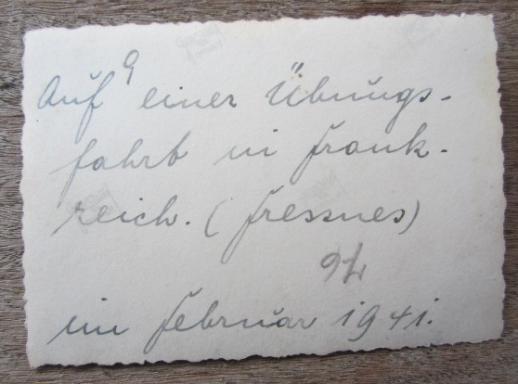 Auf einer Übungs-
fahrt in Frank-
reich. (Fressnes)
im Februar 1941.